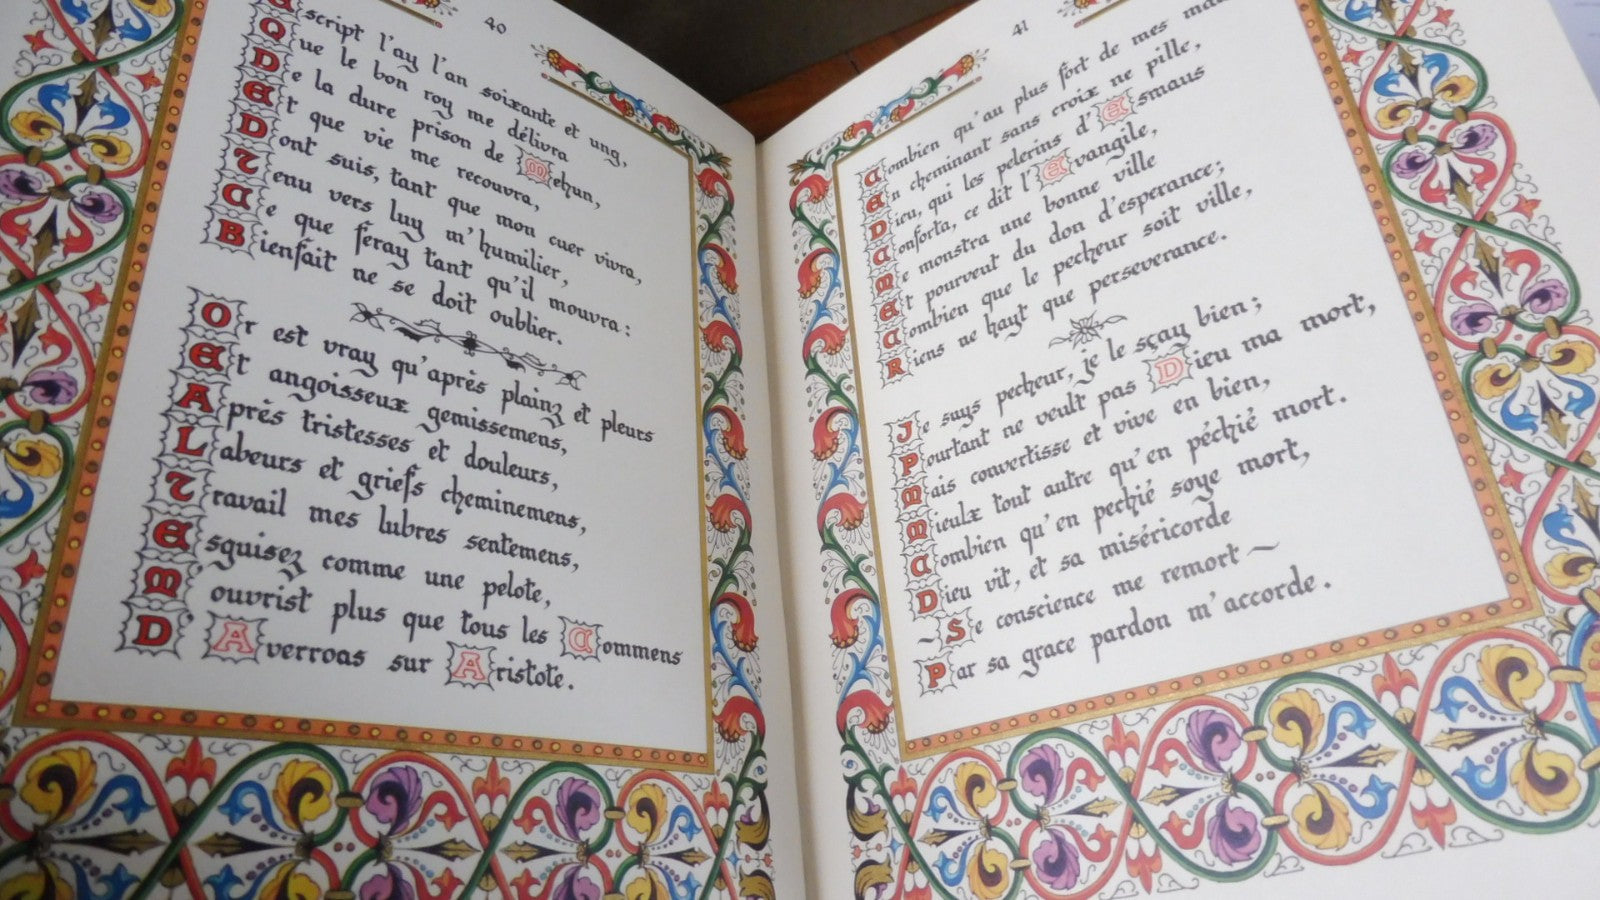 40
script l'ay l'an soixante et ung,
Que le bon roy me délivra
De la dure prison de Mehun,
Et que vie me recouvra,
Dont suis, tant que mon cuer vivra,
Tenu vers luy m'humilier,
Ce que feray tant qu'il mouvra :
Bienfait ne se doit oublier.
Or est vray qu'après plainz et pleurs
Et angoisseux gemissemens,
Après tristesses et douleurs,
Labeurs et griefs cheminemens,
Travail mes lubres sentemens,
Esguisez comme une pelote,
M'ouvrist plus que tous les Commens
D'Averroas sur Aristote.
41
Combien qu'au plus fort de mes
En cheminant sans croix ne pille,
Dieu, qui les pelerins d'Esmaus
Conforta, ce dit l'Evangile,
Me monstra une bonne ville
Et pourveut du don d'esperance ;
Combien que le pecheur soit ville,
Riens ne hayt que perseverance.
Je suys pecheur, je le sçay bien ;
Pourtant ne veult pas Dieu ma mort,
Mais convertisse et vive en bien,
Mieulx tout autre qu'en péchié mort.
Combien qu'en pechié soye mort,
Dieu vit, et sa miséricorde
~ Se conscience me remort ~
Par sa grace pardon m'accorde.